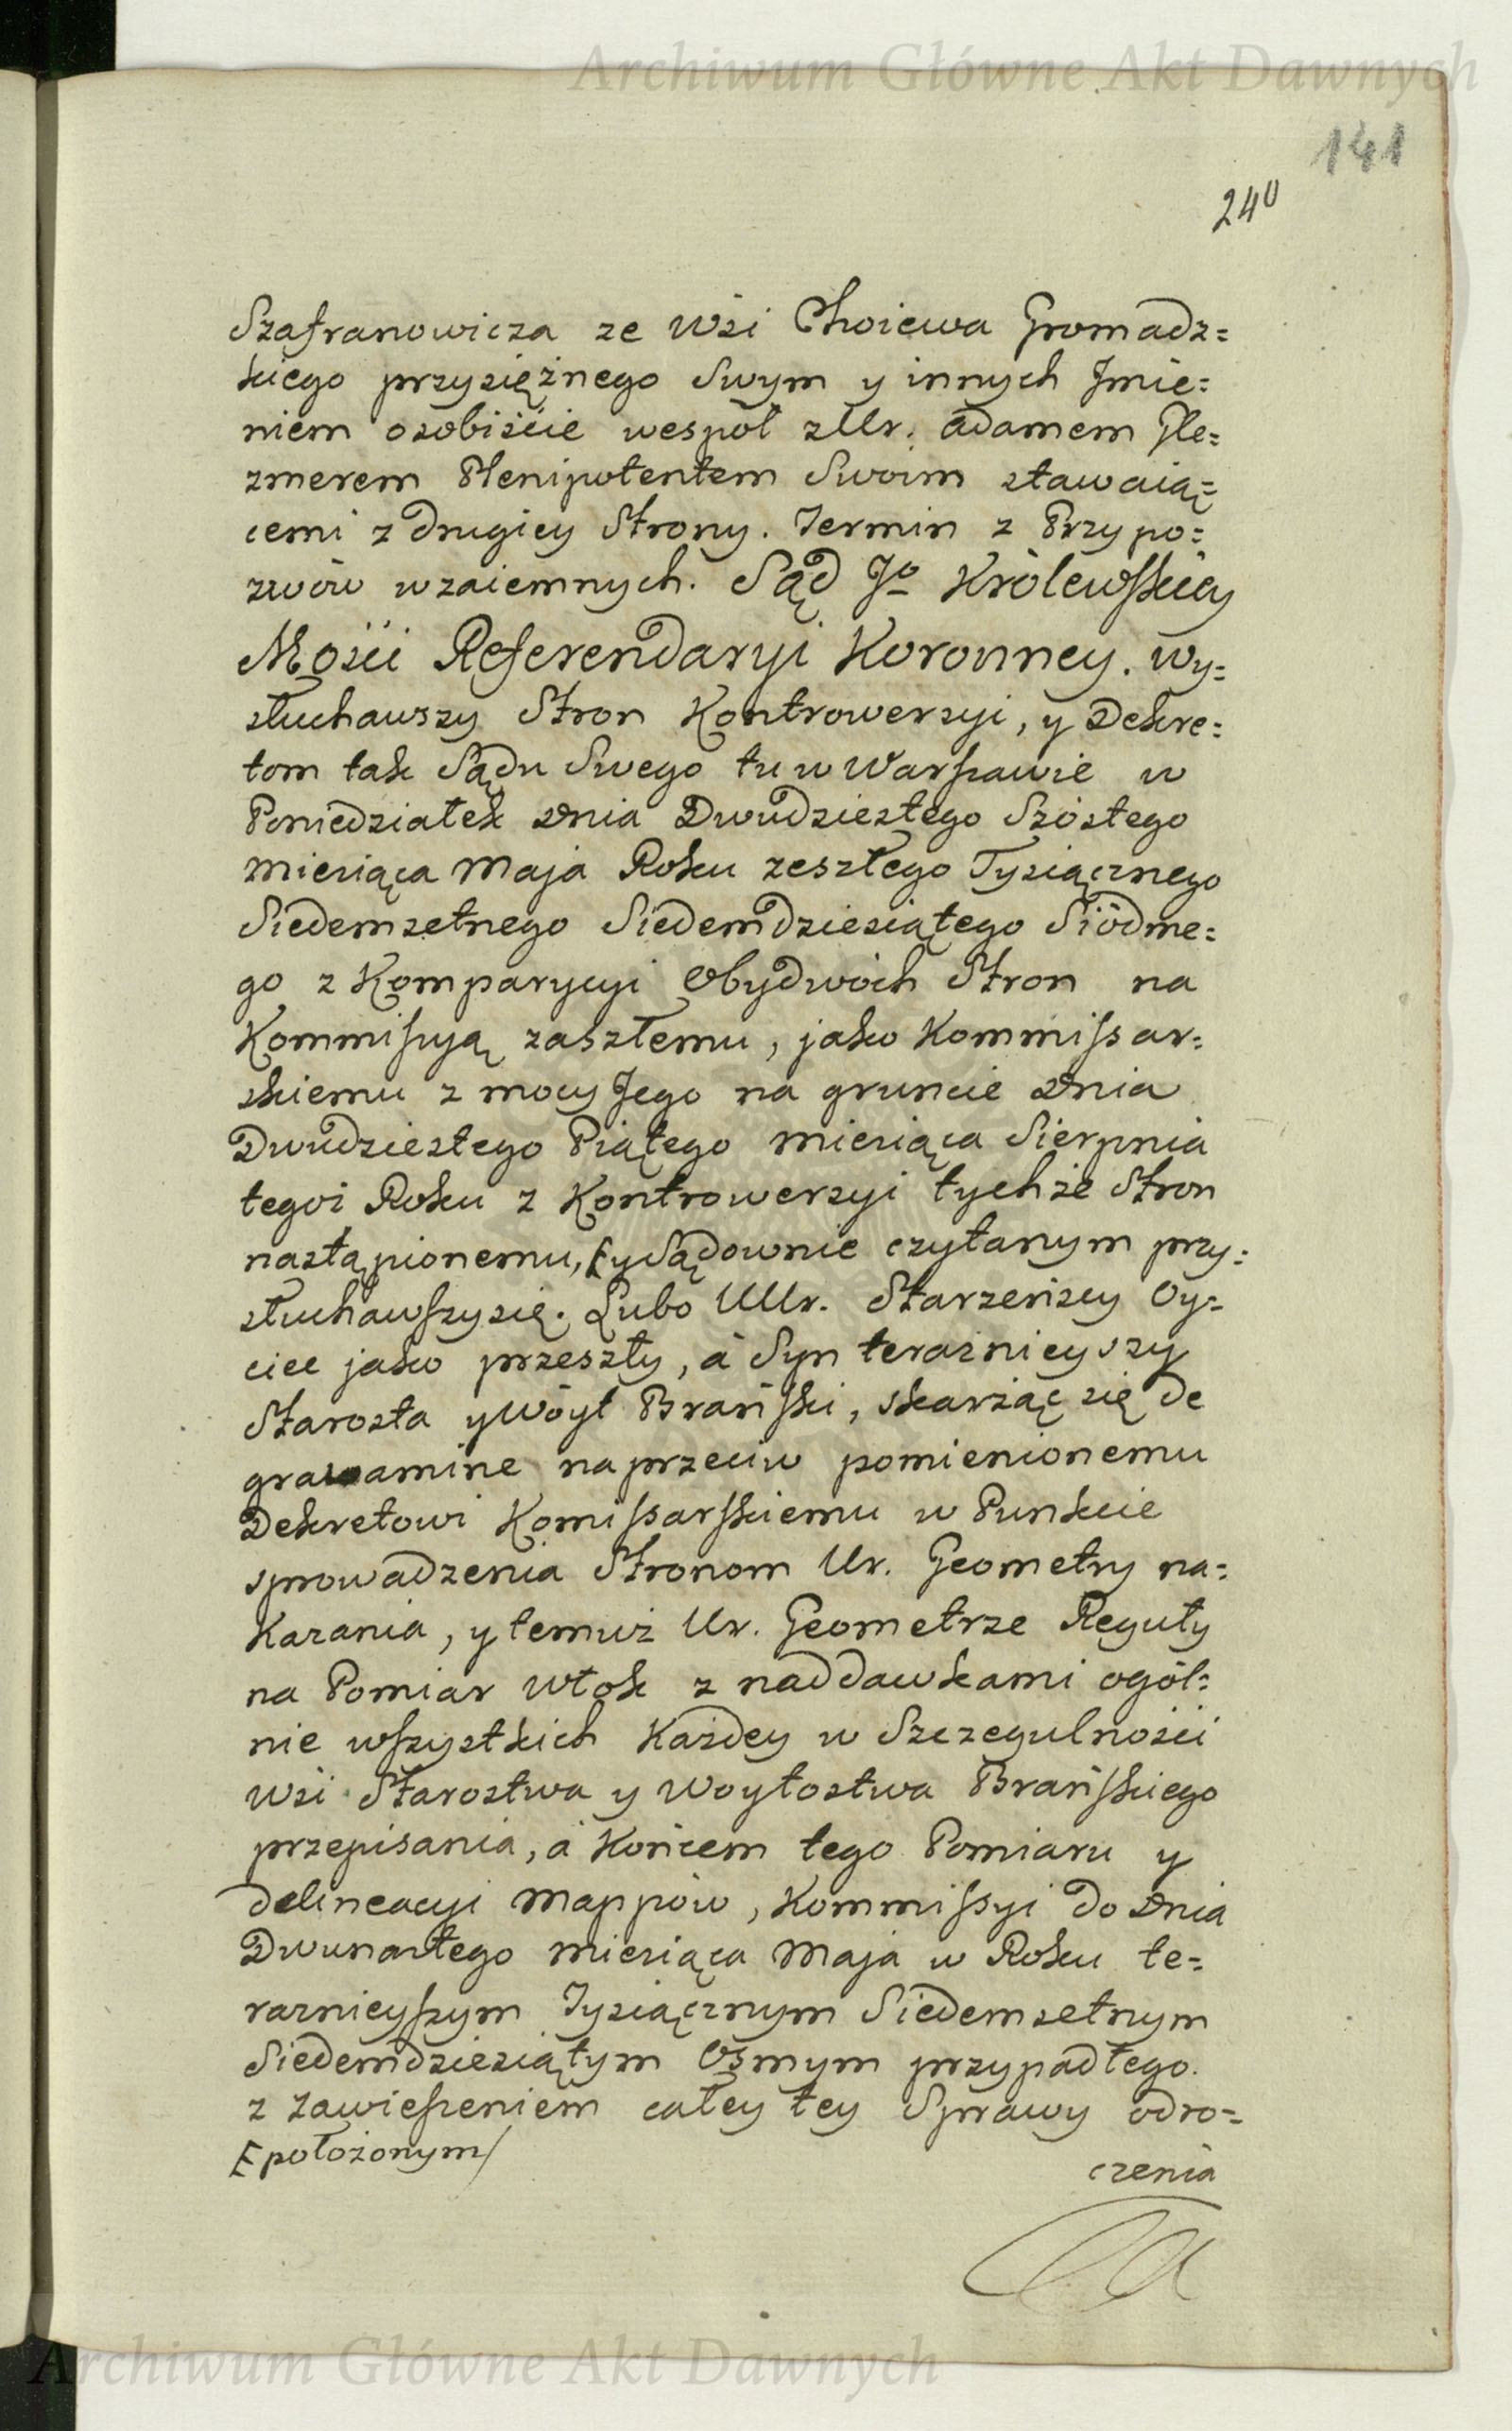 Archiwum Główne Akt Dawnych
141
240
Szafranowicza ze Wsi Choiewa Gromadz=
kiego przysiężnego Swym y innych Jmie=
niem osobiście wespół z Ur. Adamem Gle=
zmerem Plenipotentem Swoim stawaią=
cemi z drugiey Strony. Termin z Przypo=
zwów wzaiemnych. Sąd Jo Królewskiey
Mości Referendaryi Koronney. Wy=
słuchawszy Stron Kontrowersyi, y Dekre=
tom tak Sądu Swego tu w Warszawie w
Poniedziałek Dnia Dwudziestego Szóstego
Miesiąca Maja Roku zeszłego Tysiącznego
Siedemsetnego Siedemdziesiątego Siódme=
go z Komparycyi Obydwóch Stron na
Kommissyą zaszłemu, jako Kommissar=
skiemu z mocy Jego na gruncie Dnia
Dwudziestego Piątego Miesiąca Sierpnia
tegoż Roku z Kontrowersyi tychże Stron
nastąpionemu, [y Sądownie czytanym przy=
słuchawszy się. Lubo UUr. Starzeńscy Oy=
ciec jako przeszły, a Syn teraźnieyszy
Starosta y Wóyt Brański, skarżąc się de
gravamine naprzeciw pomienionemu
Dekretowi Komissarskiemu w Punkcie
sprowadzenia Stronom Ur. Geometry na=
kazania, y temuż Ur. Geometrze Reguły
na Pomiar Włok z naddawkami ogól=
nie wszystkich Każdey w Szczegulności
Wsi Starostwa y Woytostwa Brańskiego
przepisania, a Końcem tego Pomiaru y
delineacyi Mappów, Kommissyi do Dnia
Dwunastego Miesiąca Maja w Roku te=
raznieyszym Tysiącznym Siedemsetnym
Siedemdziesiątym Osmym przypadłego.
z Zawieszeniem całey tey Sprawy odro=
[położonym/
czenia
Archiwum Główne Akt Dawnych